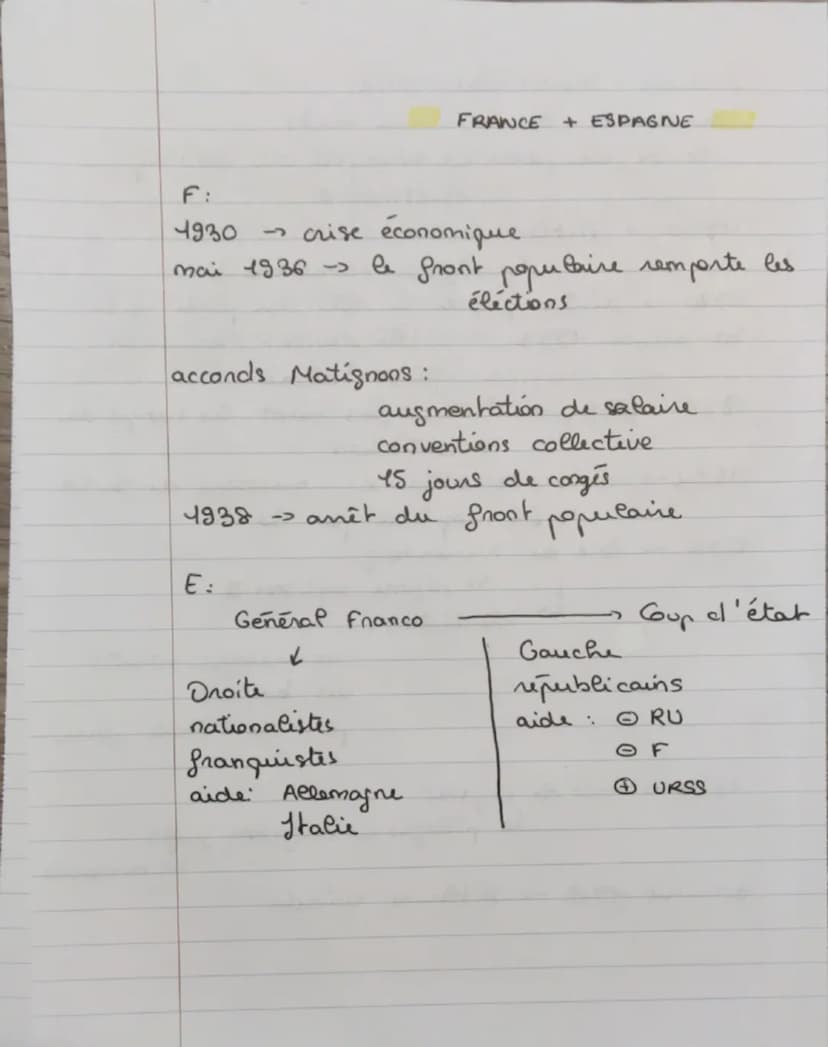 FRANCE + ESPAGNE
F:
1930 → crise économique
mai 1936 → le front populaire remporte les
éléctions
accords Matignons :
augmentation de salaire
conventions collective
15 jours de congés
1938 → arrêt du front populaire
E:
Général Franco → Coup d'état
↓
Droite
nationalistes
franquistes
aide: Allemagne
Italie
Gauche
républicains
aide : ⊖ RU
⊖ F
⊕ URSS